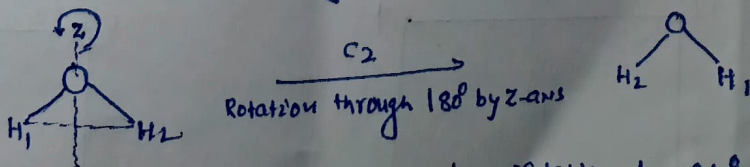 Z
C2
H1 H2
Rotation through 180° by Z-axis
H2 H1